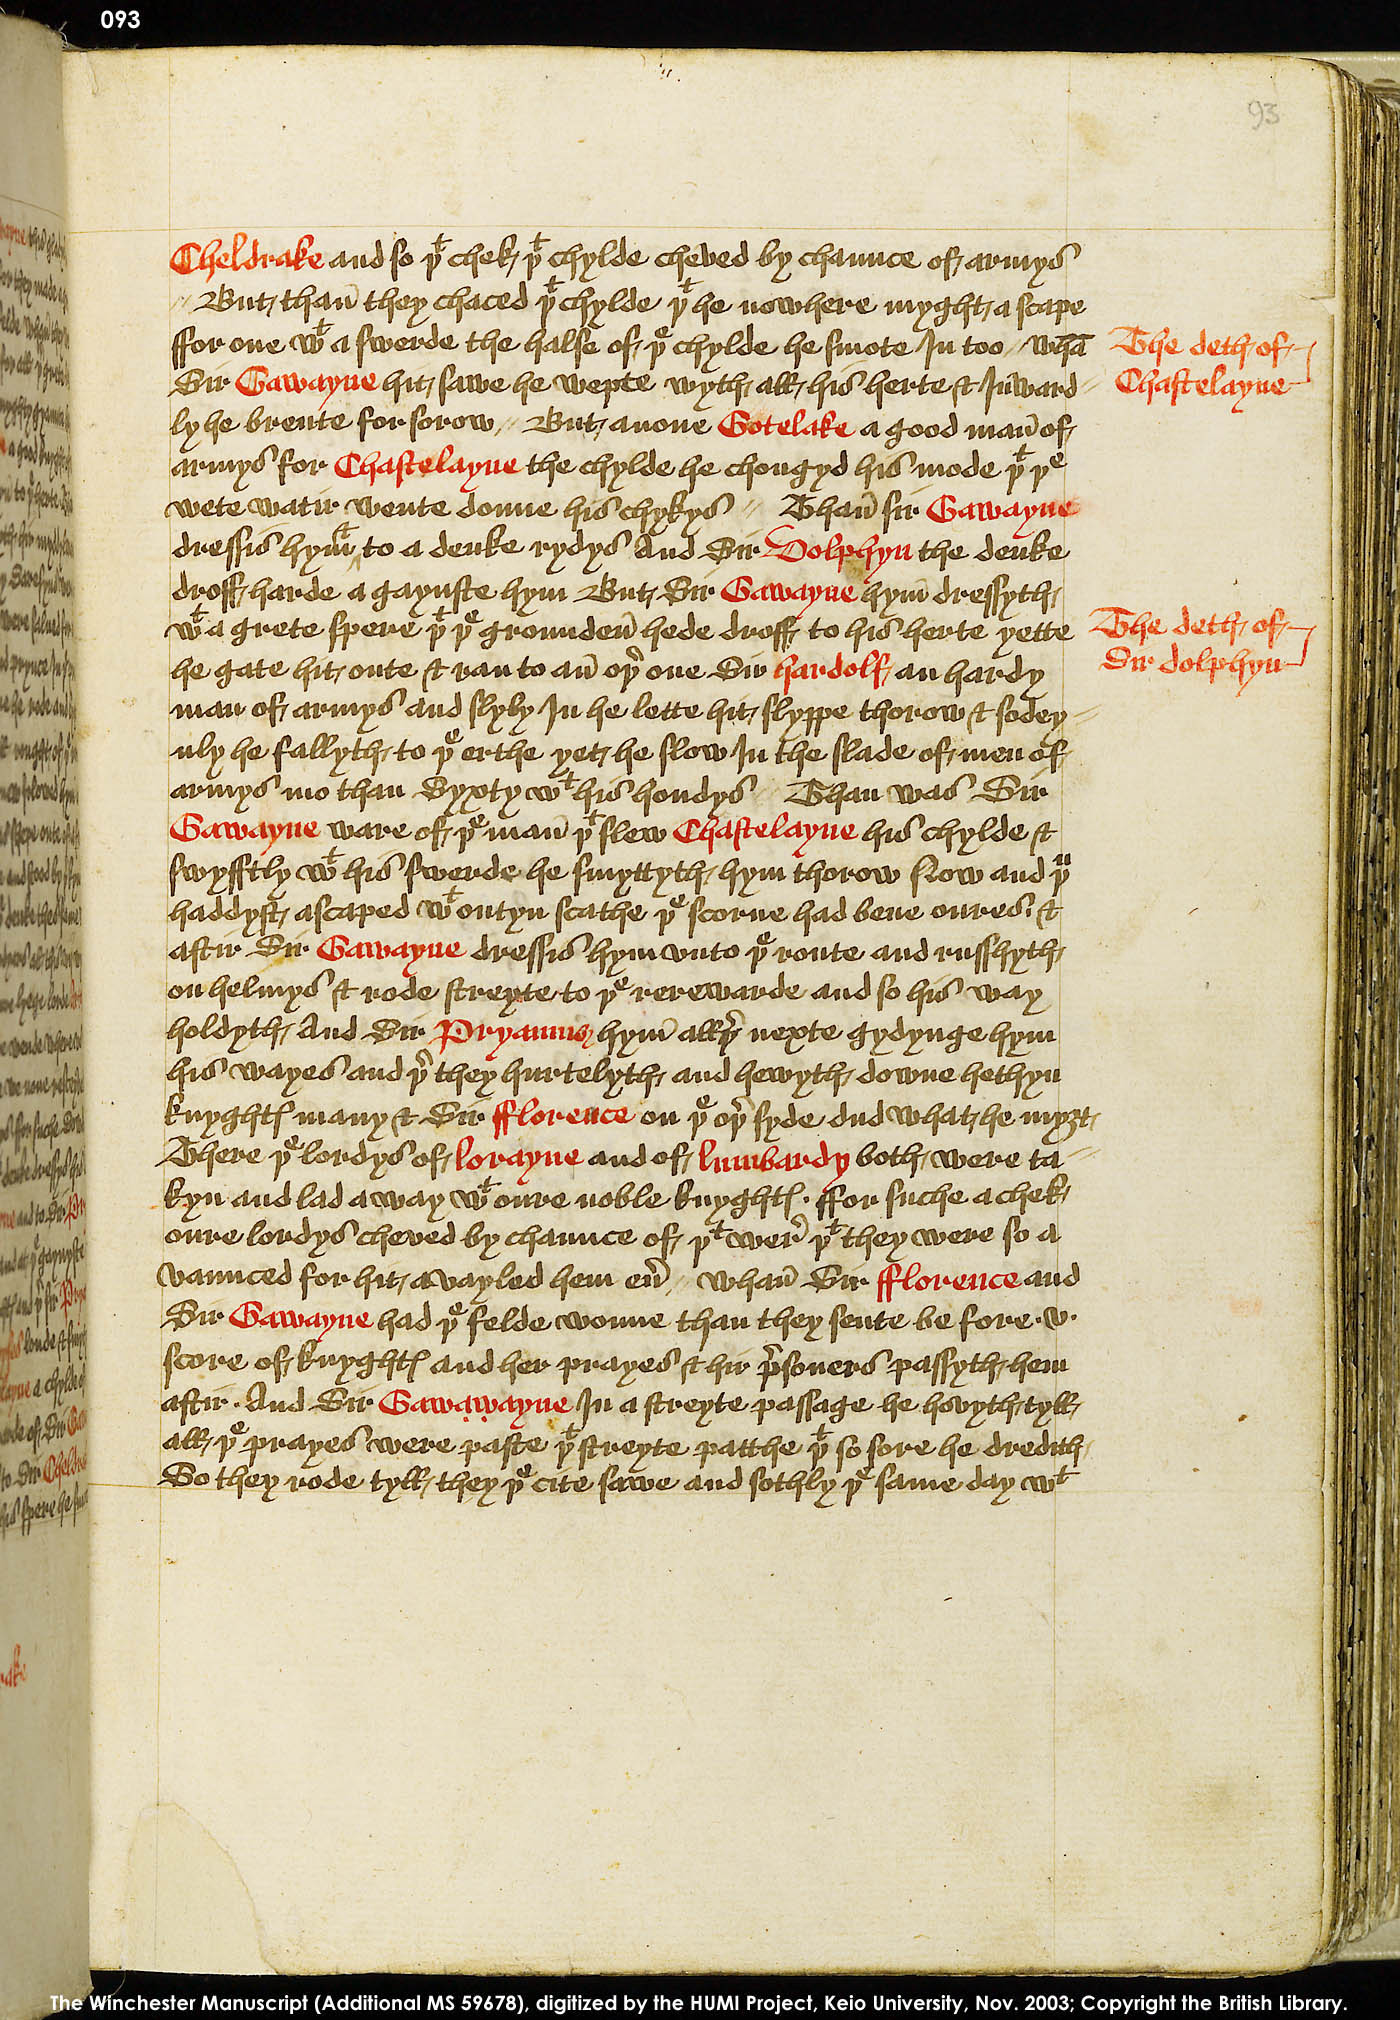 093
93
Cheldrake and so þͭ chek þͭ chylde cheved by chaunce of armys
But than̄ they chaced þͭ chylde þͭ he nowhere myght a scape
ffor one wͭ a swerde the halse of þͤ chylde he smote In too whā
Sir Gawayne hit sawe he wepte wyth all his herte & Inward
ly he brente for sorow But anone Gotelake a good man̄ of
armys for Chastelayne the chylde he chongyd his mode þͭ þͤ
wete watir wente doune his chykys Than̄ sir Gawayne
dressis hym̄ to a deuke rydys And Sir Dolphyn the deuke
droff harde a gaynste hym But Sir Gawayne hym̄ dressyth
wͭ a grete spere þͭ þͤ grounden̄ hede droff to his herte yette
he gate hit oute & ran to an̄ oþ̉ one Sir hardolf an hardy
man of armys and slyly In he lette hit slyppe thorow & sodey
nly he fallyth to þͤ erthe yet he slow In the slade of men of
armys mo than Syxty wͭ his hondys Than was Sir
Gawayne ware of þͤ man̄ þͭ slew Chastelayne his chylde &
swyfftly wͭ his swerde he smyttyth hym thorow Now and þͧ
haddyst ascaped wͭoutyn scathe þͤ scorne had bene oures &
aftir Sir Gawayne dressis hym vnto þͤ route and russhyth
on helmys & rode streyte to þͤ rerewarde and so his way
holdyth And Sir Pryamus hym̄ allþ̉ nexte gydynge hym
his wayes and þ̉ they hurtelyth and hewyth downe hethyn
knyghtꝭ many & Sir fflorence on þͤ oþ̉ syde dud what he myȝt
There þͤ lordys of lorayne and of lumbardy both were ta
kyn and lad a way wͭ oure noble knyghtꝭ · ffor suche a chek
oure lordys cheved by chaunce of þͭ wer̉ þͭ they were so a
vaunced for hit avayled hem eū̉ whan̄ Sir fflorence and
Sir Gawayne had þͤ felde wonne than they sente be fore ·v·
score of knyghtꝭ and her prayes & hir p̉soners passyth hem
aftir · And Sir Gawạẉayne In a streyte passage he hovyth tyll
all þͤ prayes were paste þͭ streyte patthe þͭ so sore he dredith
So they rode tyll they þͤ cite sawe and sothly þͤ same day wͭ
The deth of
Chastelayne
The deth of
Sir dolphyn
The Winchester Manuscript (Additional MS 59678), digitized by the HUMI Project, Keio University, Nov. 2003; Copyright the British Library.